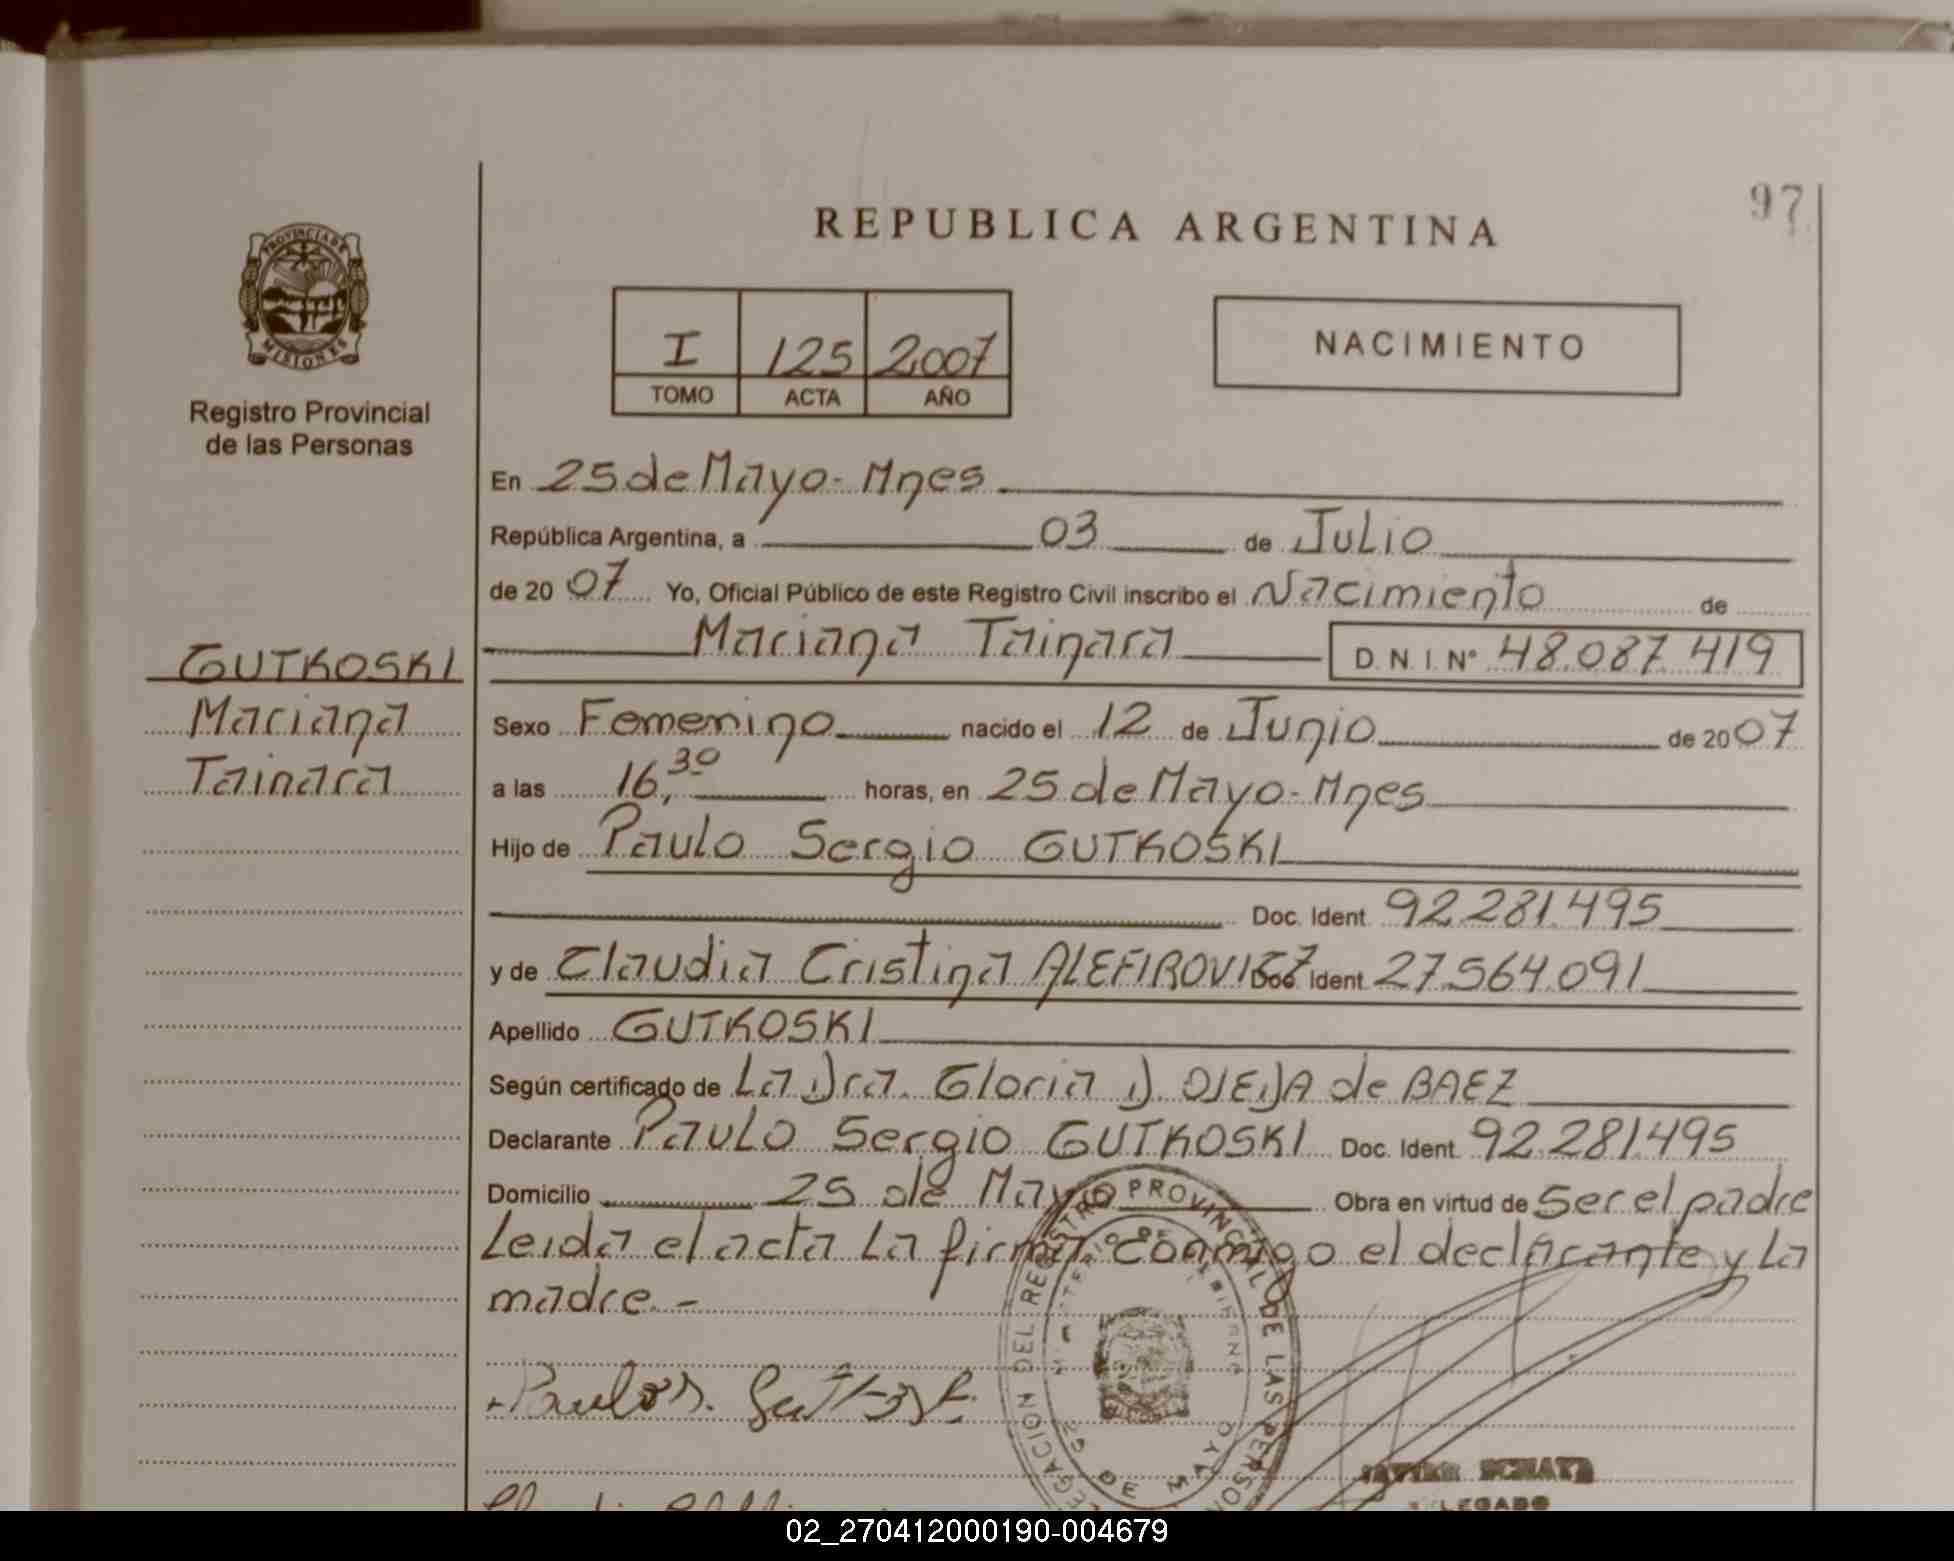 97
REPUBLICA ARGENTINA
PROVINCIA DE MISIONES
I 125 2007
TOMO ACTA AÑO
NACIMIENTO
Registro Provincial
de las Personas
En 25 de Mayo - Mnes
República Argentina, a 03 de Julio
de 20 07 Yo, Oficial Público de este Registro Civil inscribo el Nacimiento de
GUTKOSKI
Mariana Tainara D.N.I. N° 48.087.419
Mariana
Sexo Femenino nacido el 12 de Junio de 20 07
Tainara
a las 16,30 horas, en 25 de Mayo - Mnes
Hijo de Paulo Sergio GUTKOSKI
Doc. Ident. 92.281.495
y de Claudia Cristina ALEFIROVICZ Doc. Ident. 27.564.091
Apellido GUTKOSKI
Según certificado de La Dra. Gloria D. OJEDA de BAEZ
Declarante Paulo Sergio GUTKOSKI Doc. Ident. 92.281.495
Domicilio 25 de Mayo Obra en virtud de Ser el padre
Leida el acta La firma conmigo el declarante y La
madre. -
DELEGACION DEL REGISTRO PROVINCIAL DE LAS PERSONAS
MINISTERIO DE GOBIERNO
25 DE MAYO
Paulo S. Gutkoski
DELEGADO
02_270412000190-004679